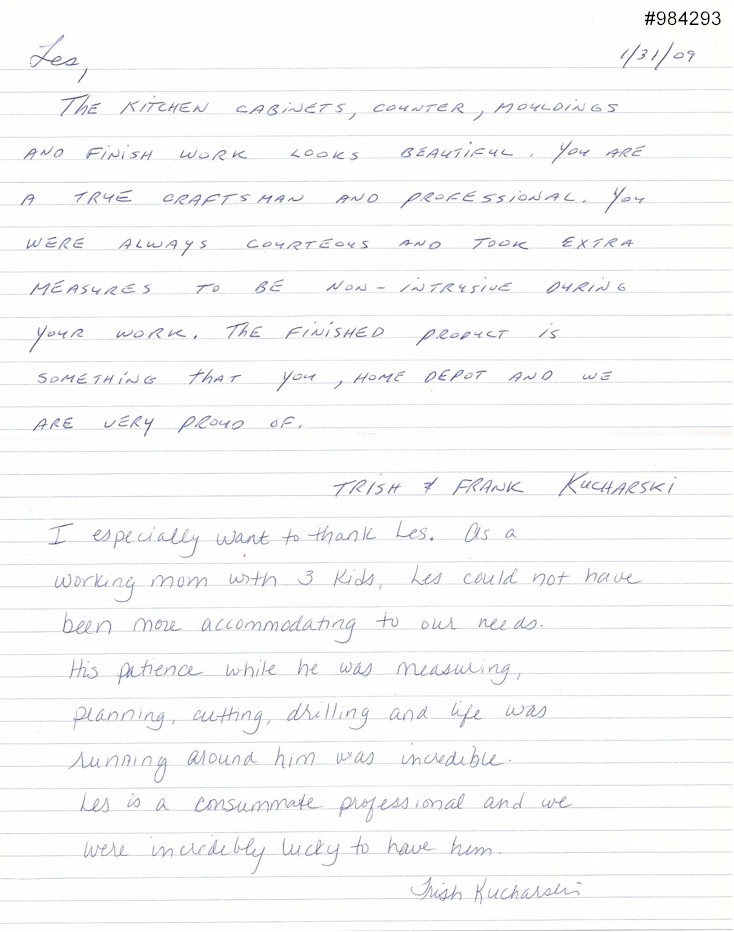 #984293
Les,
1/31/09
THE KITCHEN CABINETS, COUNTER, MOULDINGS
AND FINISH WORK LOOKS BEAUTIFUL. YOU ARE
A TRUE CRAFTSMAN AND PROFESSIONAL. YOU
WERE ALWAYS COURTEOUS AND TOOK EXTRA
MEASURES TO BE NON-INTRUSIVE DURING
YOUR WORK. THE FINISHED PRODUCT IS
SOMETHING THAT YOU, HOME DEPOT AND WE
ARE VERY PROUD OF.
TRISH & FRANK KUCHARSKI
I especially want to thank Les. As a
working mom with 3 kids, Les could not have
been more accommodating to our needs.
His patience while he was measuring,
planning, cutting, drilling and life was
running around him was incredible.
Les is a consummate professional and we
were incredibly lucky to have him.
Trish Kucharski